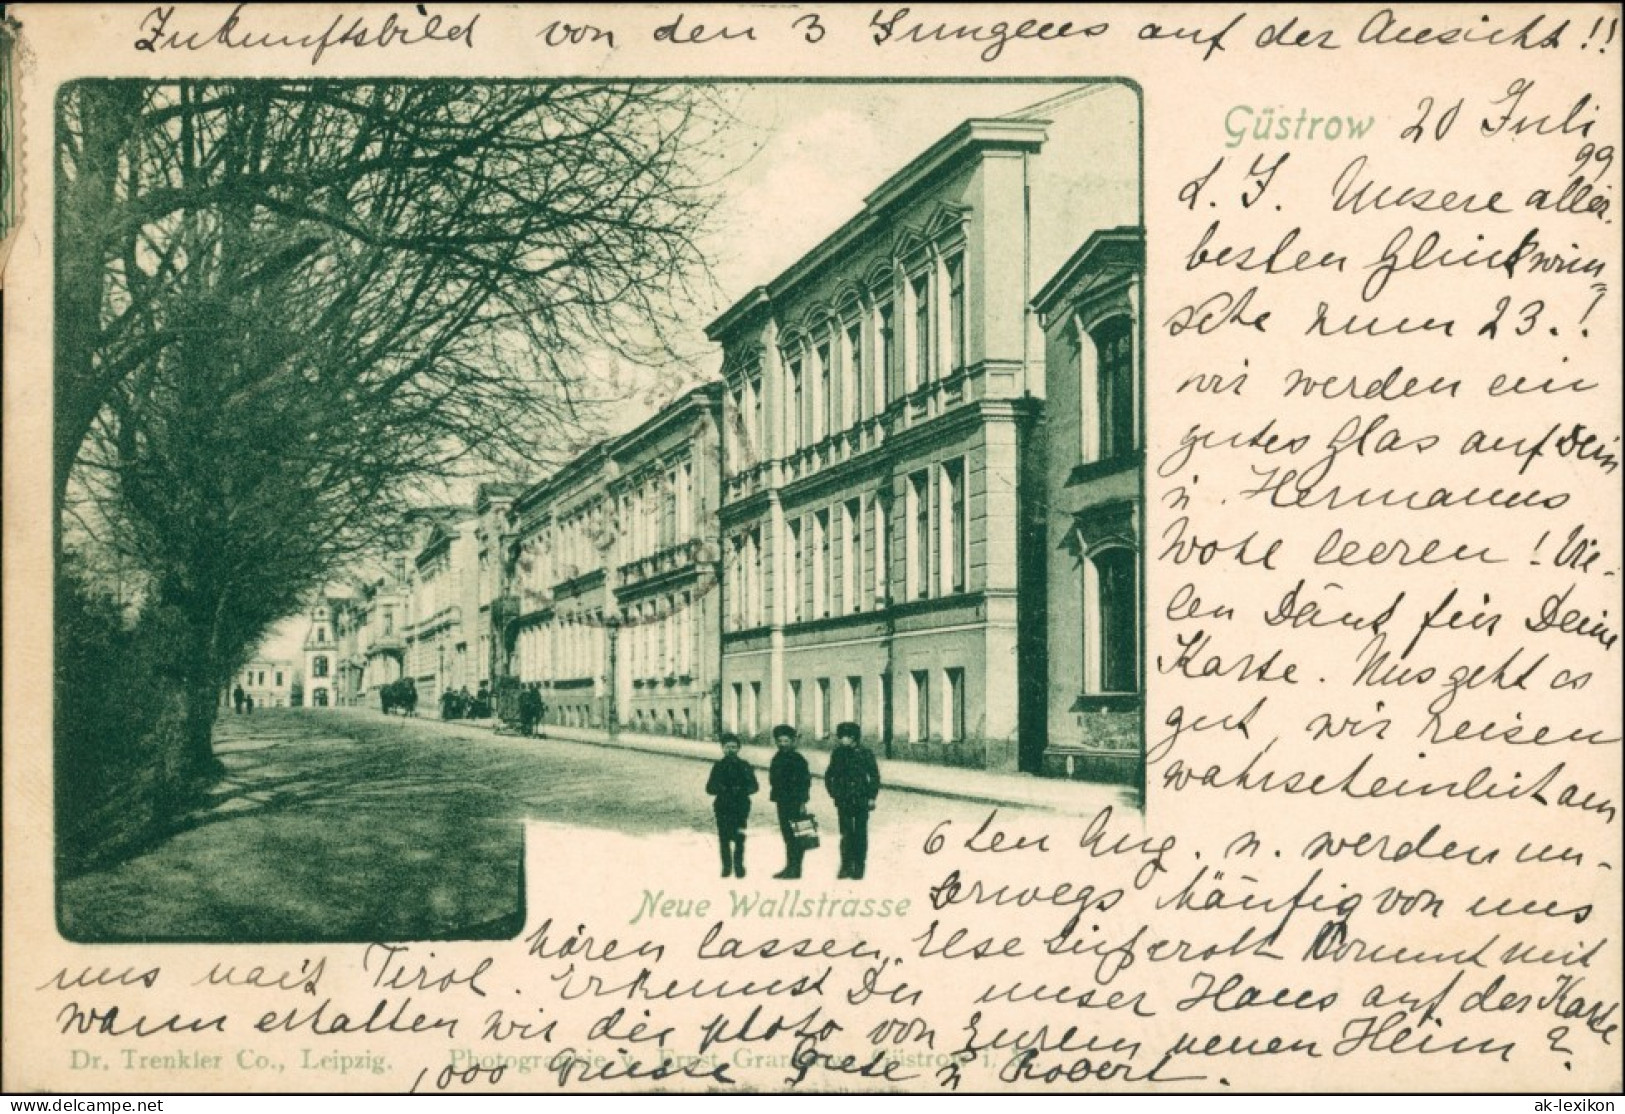 Zukunftsbild von den 3 Jungens auf der Ansicht!!
Güstrow 20 Juli
99
L. J. Unsere aller-
besten Glückwün-
sche zum 23.!
wir werden ein
gutes Glas auf Dein
u. Hermanns
Wohl leeren! Vie-
len Dank für Deine
Karte. Uns geht es
gut, wir reisen
wahrscheinlich am
6ten Aug. u. werden un-
terwegs häufig von uns
Neue Wallstrasse
hören lassen. Else kommt mit
uns nach Tirol. Erkennst Du unser Haus auf der Karte
wann erhalten wir die photo von Eurem neuen Heim?
Dr. Trenkler Co., Leipzig. Photographie v. Ernst Güstrow i.
1000 Grüsse Grete u Robert.
ak-lexikon
www.delcampe.net